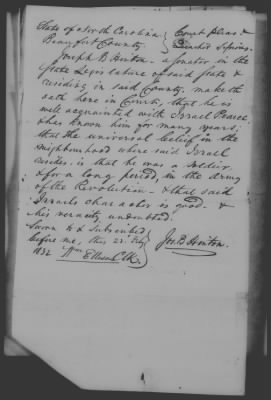 State of North Carolina } Court Pleas &
Beaufort County. } Quarter Sessions.
Joseph B Hinton - a senator in the
State Legislature of said State &
residing in said County, maketh
oath here in Court, that he is
well acquainted with Israel Pearce,
& has known him for many years;
that the universal belief in the
neighbourhood where said Israel
resides, is that he was a soldier,
& for a long period, in the army
of the Revolution - & that said
Israels character is good &
his veracity undoubted.
Sworn to & Subscribed }
before me, this 22 Feby } Jos. B Hinton.
1832 Wm Ellison Clk